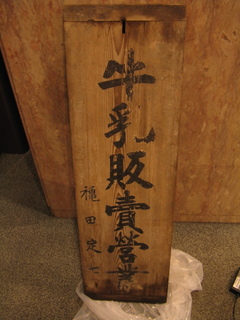 牛乳販賣營業
穐田定七